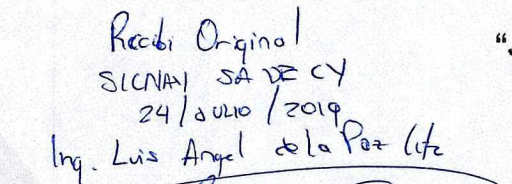 Recibi Original
SICNAY SA DE CV
24/JULIO/2019
Ing. Luis Angel de la Paz